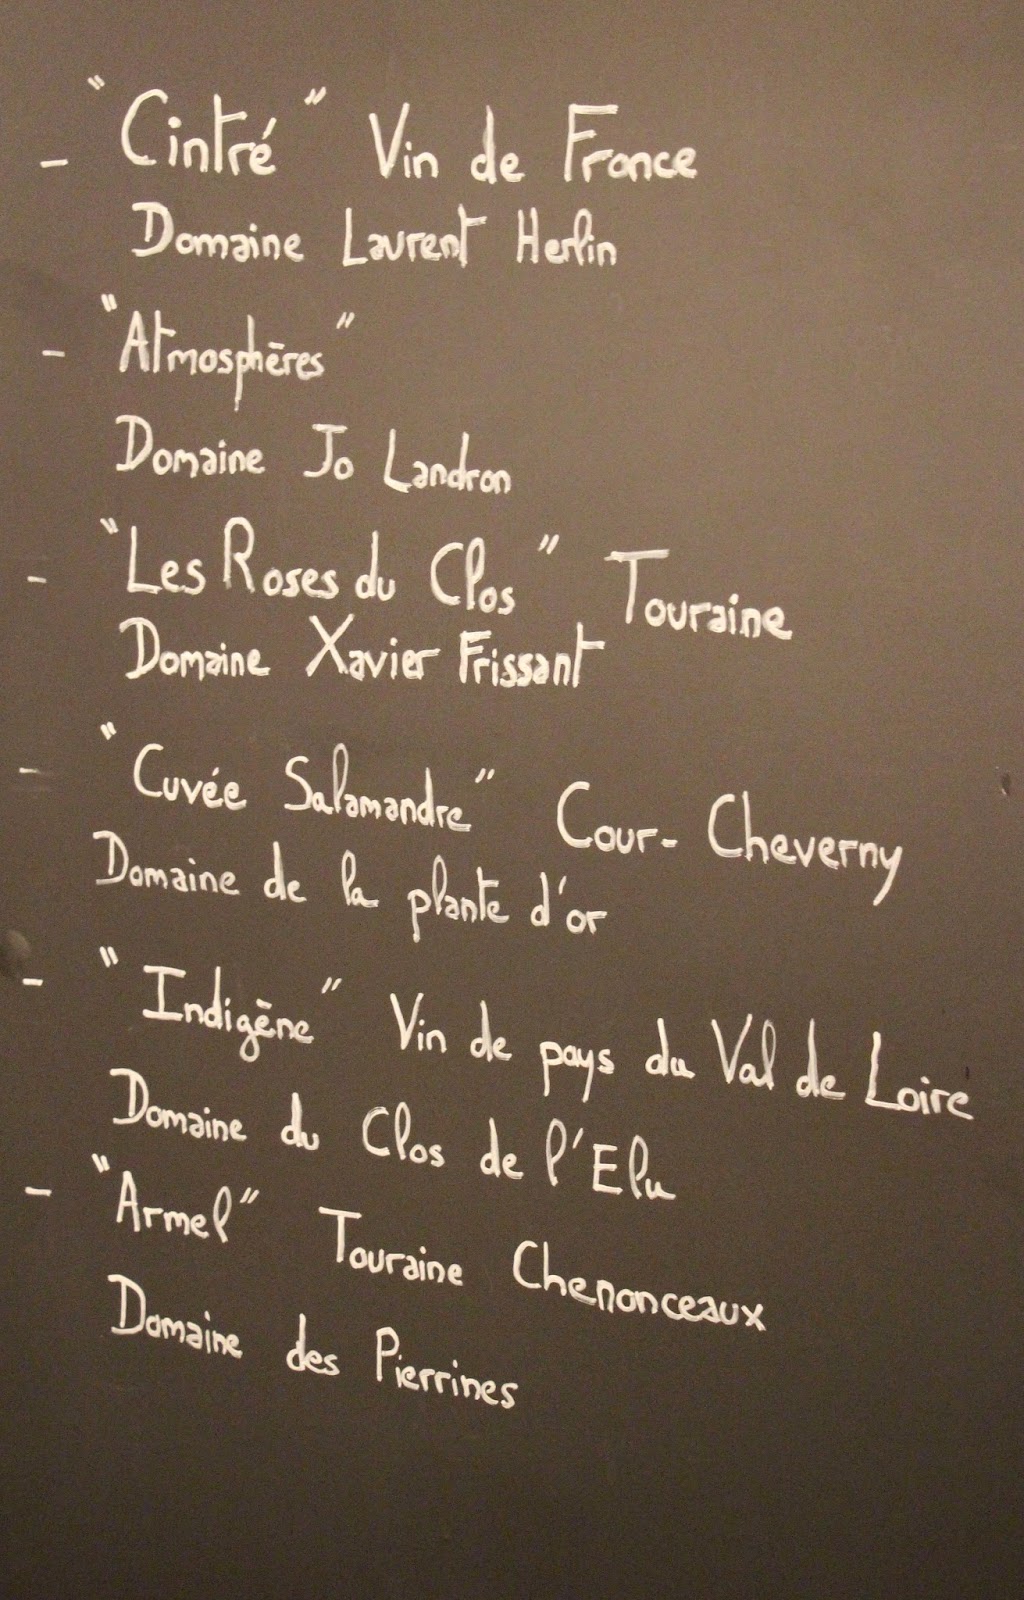 - "Cintré" Vin de France
Domaine Laurent Herlin
- "Atmosphères"
Domaine Jo Landron
- "Les Roses du Clos" Touraine
Domaine Xavier Frissant
- "Cuvée Salamandre" Cour-Cheverny
Domaine de la plante d'or
- "Indigène" Vin de pays du Val de Loire
Domaine du Clos de l'Elu
- "Armel" Touraine Chenonceaux
Domaine des Pierrines